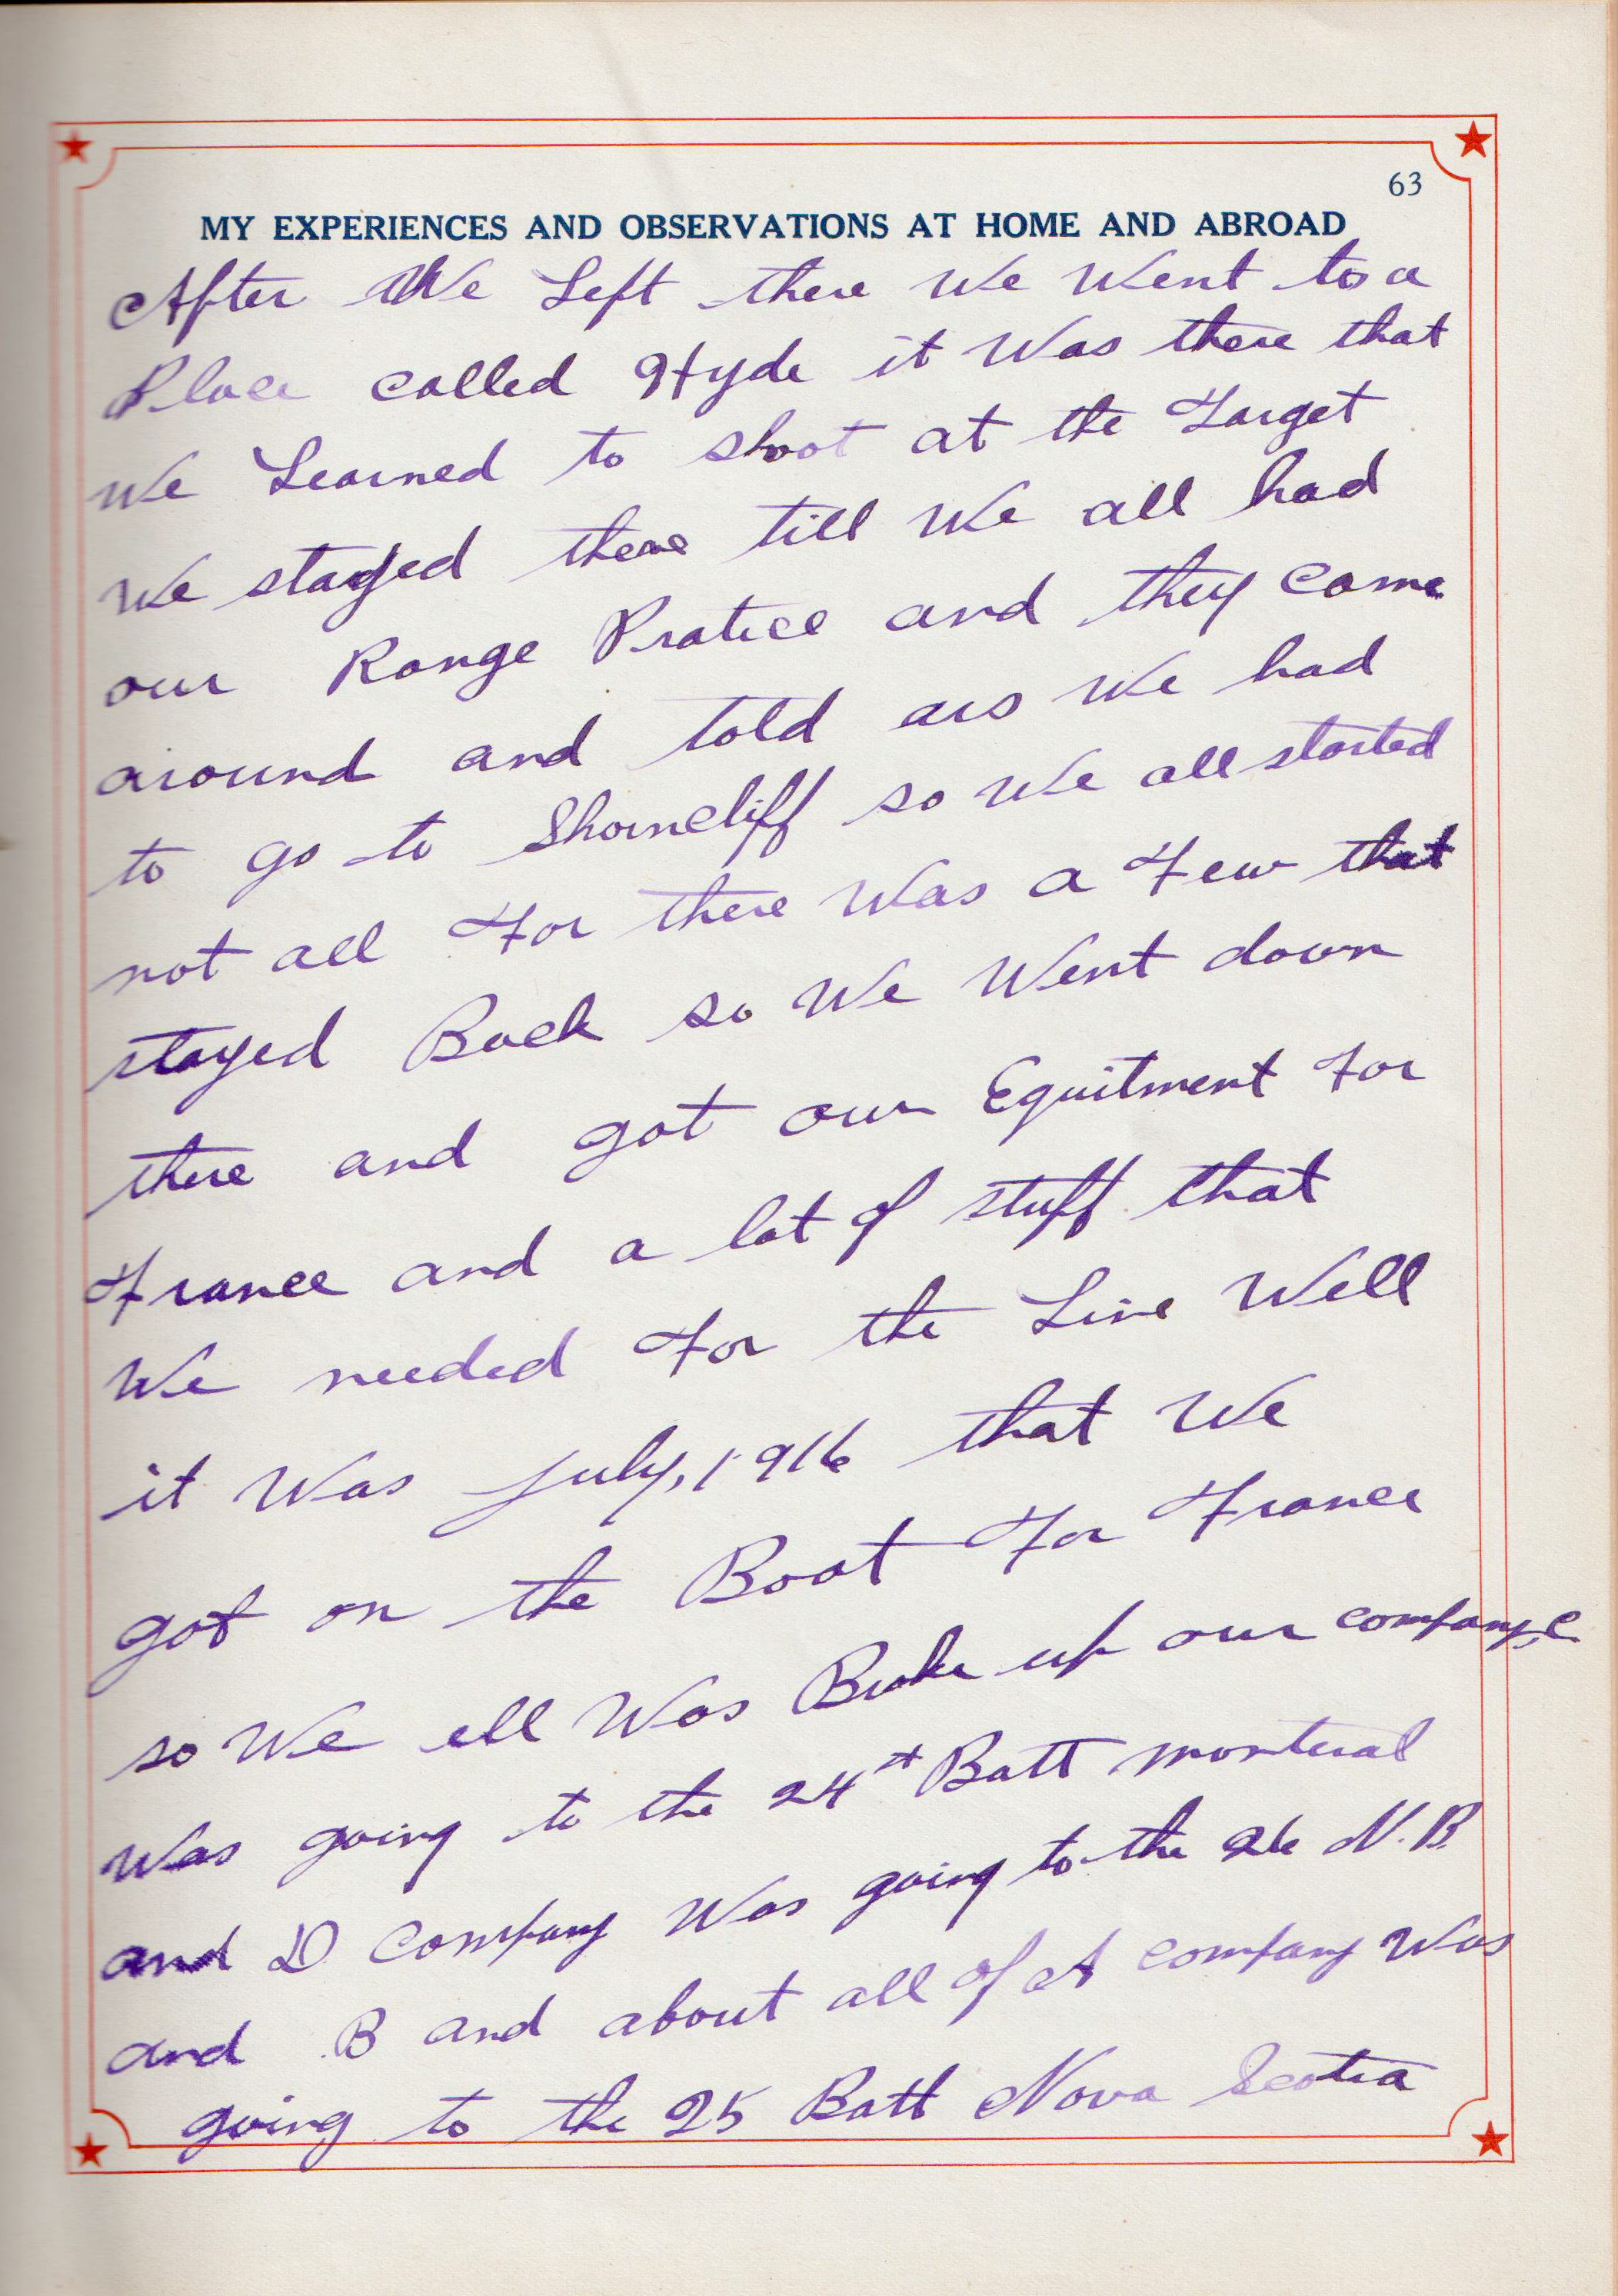 63
MY EXPERIENCES AND OBSERVATIONS AT HOME AND ABROAD
After We Left there We Went to a
Place called Hyde it Was there that
We Learned to shoot at the Target
We stayed there till We all had
our Range Pratice and they come
around and told us We had
to go to Shorncliff so We all started
not all For there Was a Few that
stayed Back so We Went down
there and got our Equitment For
France and a lot of stuff that
We needed For the Line Well
it Was July, 1916 that We
got on the Boat For France
so We all Was Broke up our company, C
Was going to the 24 Batt montreal
and D Company Was going to the 26 N.B.
and B and about all of A company Was
going to the 25 Batt Nova Scotia